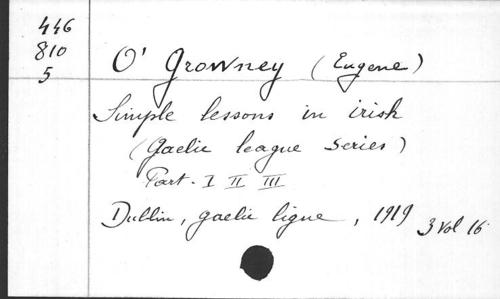 446
810
5
O' Growney (Eugene)
Simple lessons in irish
(Gaelic league series)
Part. I II III
Dublin, gaelic ligue, 1919 3 vol 16